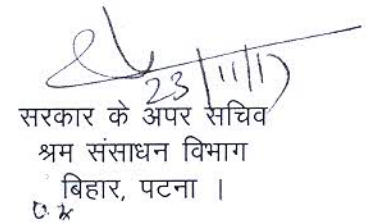 23/11/17
सरकार के अपर सचिव
श्रम संसाधन विभाग
बिहार, पटना ।